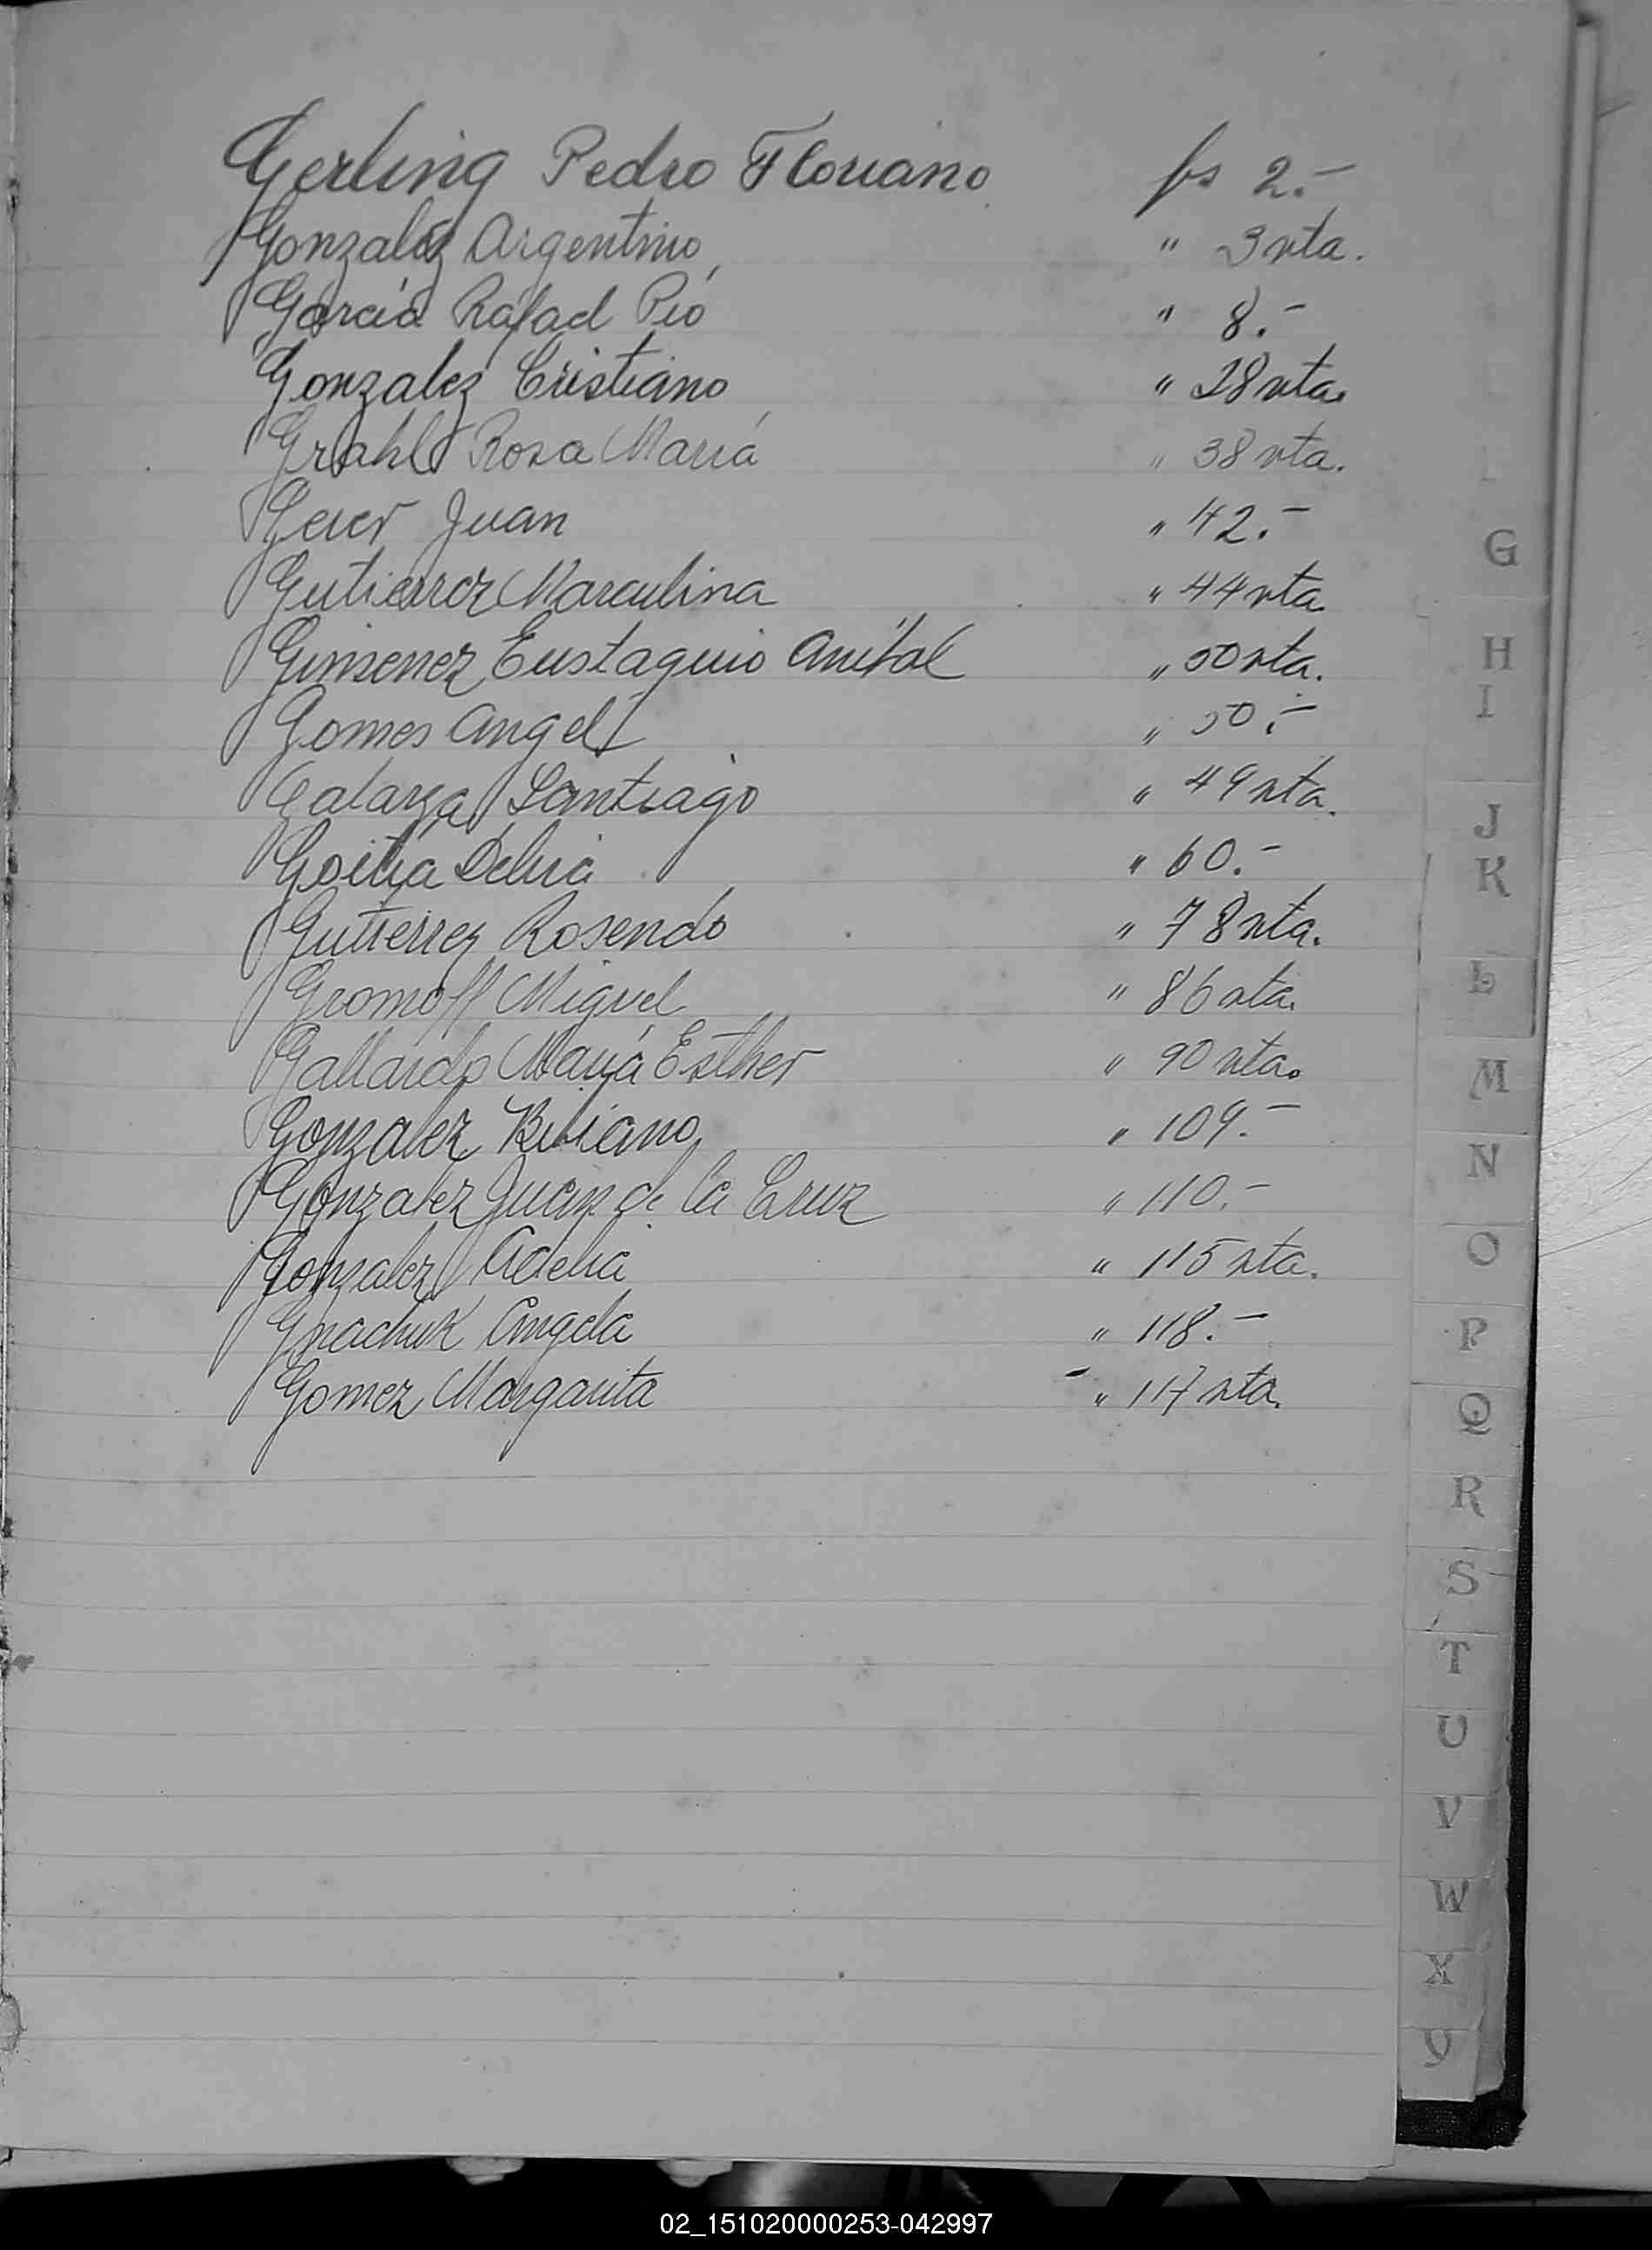 Gerling Pedro Floriano fs 2.-
Gonzalez Argentino " 3 vta.
García Rafael Pío " 8.-
Gonzalez Cristiano " 28 vta.
Grahl Rosa María " 38 vta.
Geier Juan " 42.-
Gutierrez Marculina " 44 vta.
Gimenez Eustaquio Anibal " 50 vta.
Gomes Angel " 50.-
Galarza Santiago " 49 vta.
Goitia Delia " 60.-
Gutierrez Rosendo " 78 vta.
Gromoff Miguel " 86 vta.
Gallardo María Esther " 90 vta.
Gonzalez Bibiano " 109.-
Gonzalez Juan de la Cruz " 110.-
Gonzalez Adelia " 115 vta.
Gnachuk Angela " 118.-
Gomez Margarita " 117 vta.
G
H
I
J
K
L
M
N
O
P
Q
R
S
T
U
V
W
X
Y
02_151020000253-042997